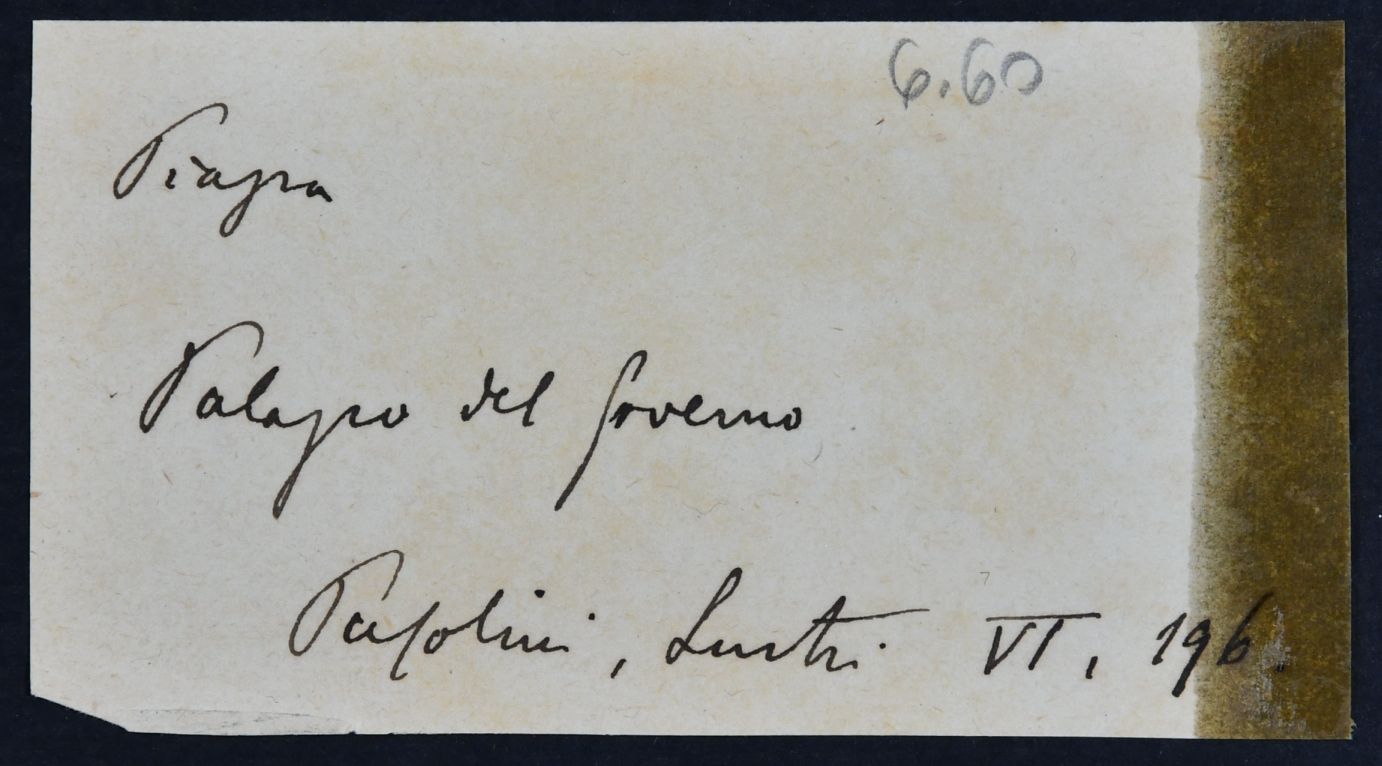 6.60
Piazza
Palazzo del Governo
Pasolini, Lustri VI, 196.